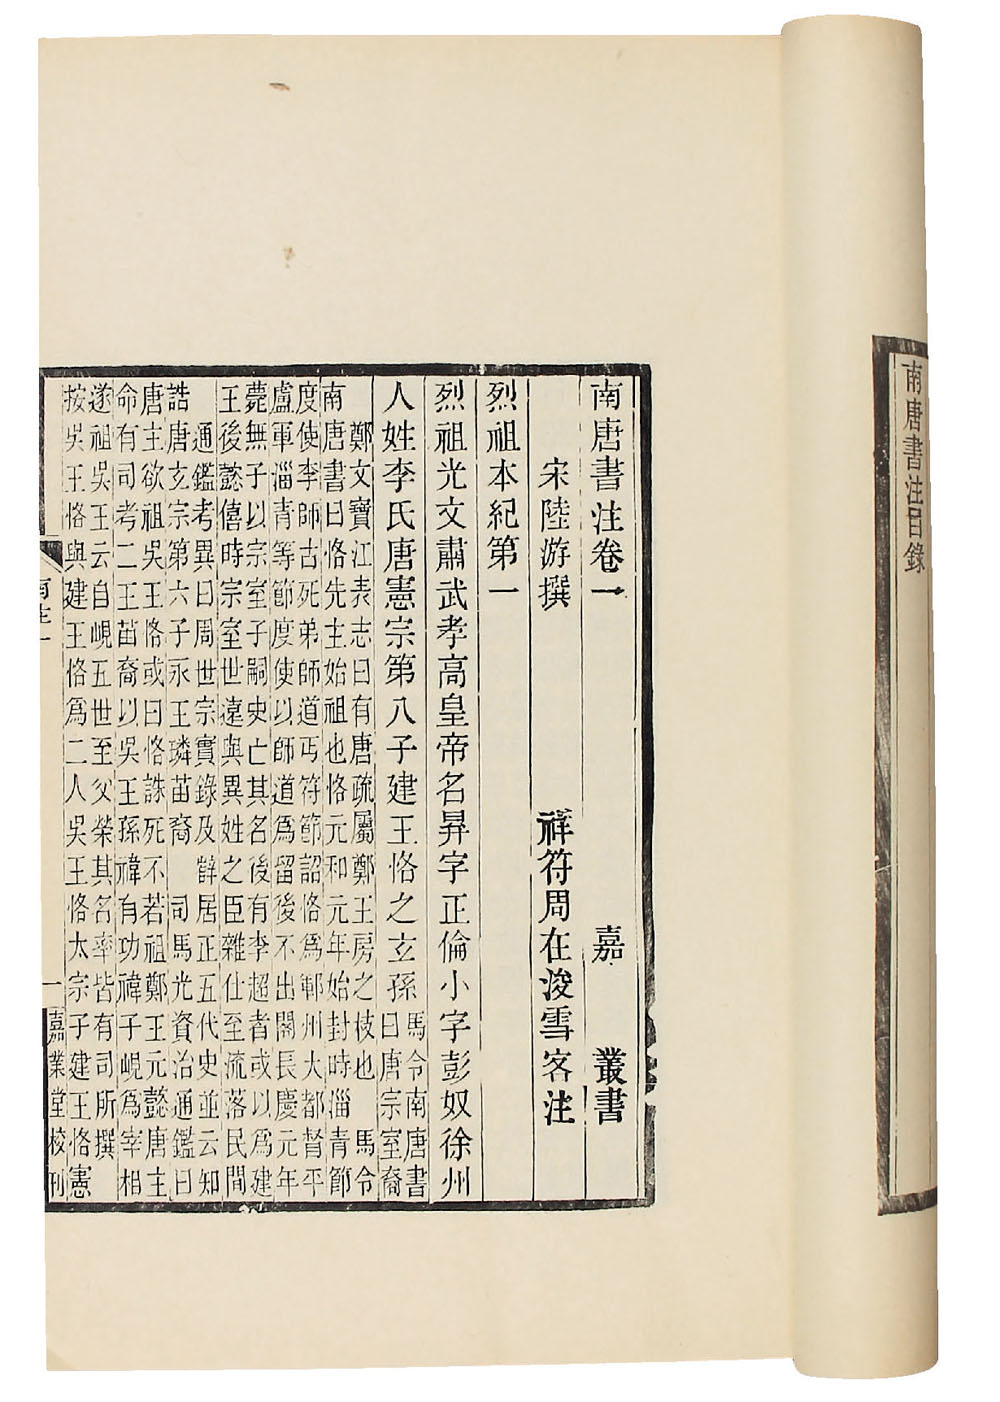 南唐書注目錄
南唐書注卷一 嘉 叢書
宋陸游撰 祥符周在浚雪客注
烈祖本紀第一
烈祖光文肅武孝高皇帝名昪字正倫小字彭奴徐州
人姓李氏唐憲宗第八子建王恪之玄孫
馬令南唐書
曰唐宗室裔
鄭文寶江表志曰有唐疏屬鄭王房之枝也 馬令
南唐書曰恪先主始祖也恪元和元年始封時淄青節
度使李師古死弟師道丐符節詔恪爲鄆州大都督平
盧軍淄青等節度使以師道爲留後不出閣長慶元年
薨無子以宗室子嗣史亡其名後有李超者或以爲建
王後懿僖時宗室世遠與異姓之臣雜仕至流落民間
通鑑考異曰周世宗實錄及薛居正五代史並云知
誥唐玄宗第六子永王璘苗裔 司馬光資治通鑑曰
唐主欲祖吳王恪或曰恪誅死不若祖鄭王元懿唐主
命有司考二王苗裔以吳王孫禕有功禕子峴爲宰相
遂祖吳王云自峴五世至父榮其名率皆有司所撰
按吳王恪與建王恪爲二人吳王恪太宗子建王恪憲
南注一 一 嘉業堂校刊